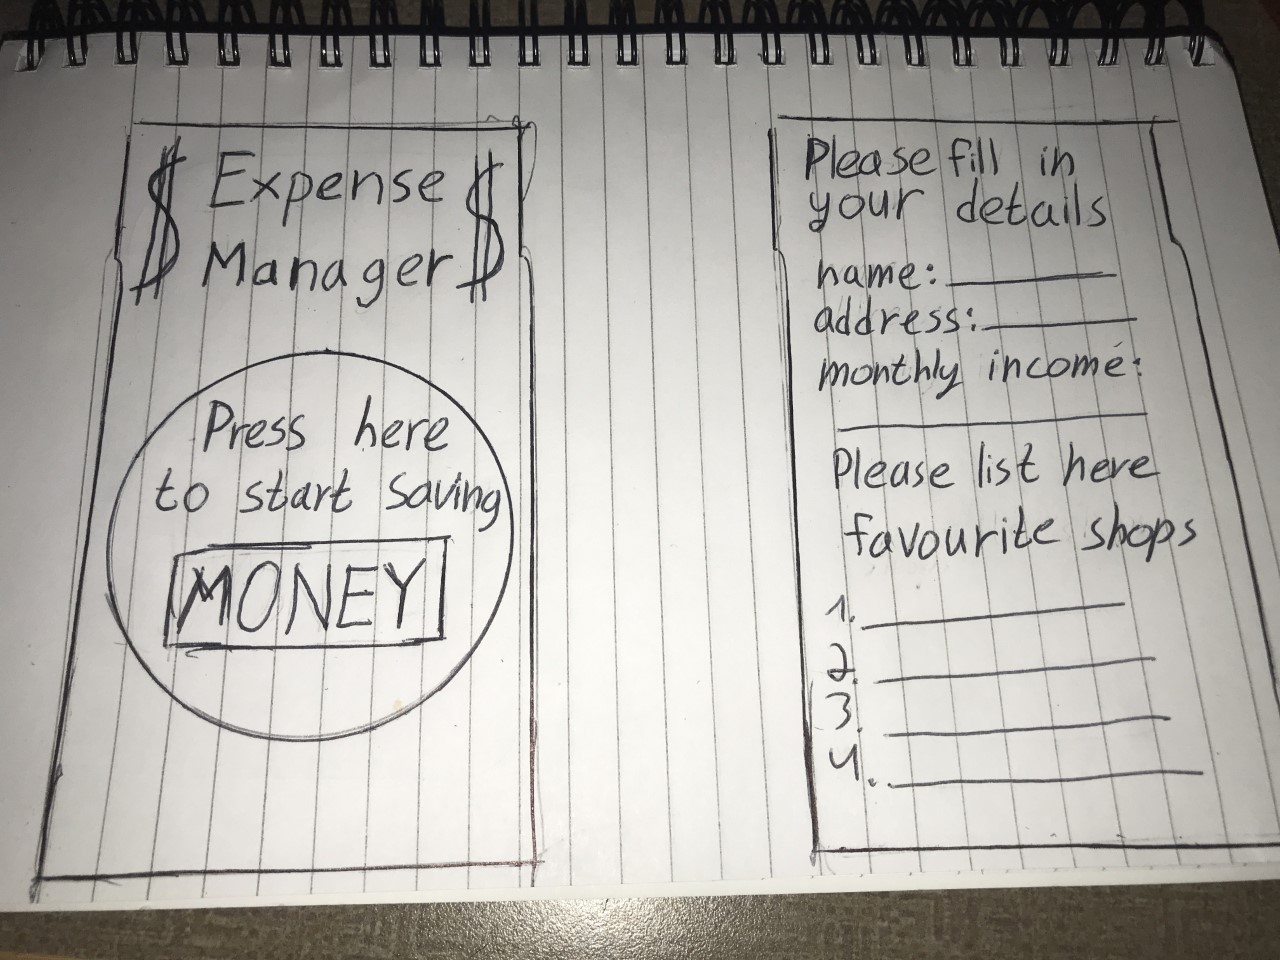 $ Expense $
Manager
Press here
to start saving
MONEY
Please fill in
your details
name:
address:
monthly income:
Please list here
favourite shops
1.
2.
3.
4.